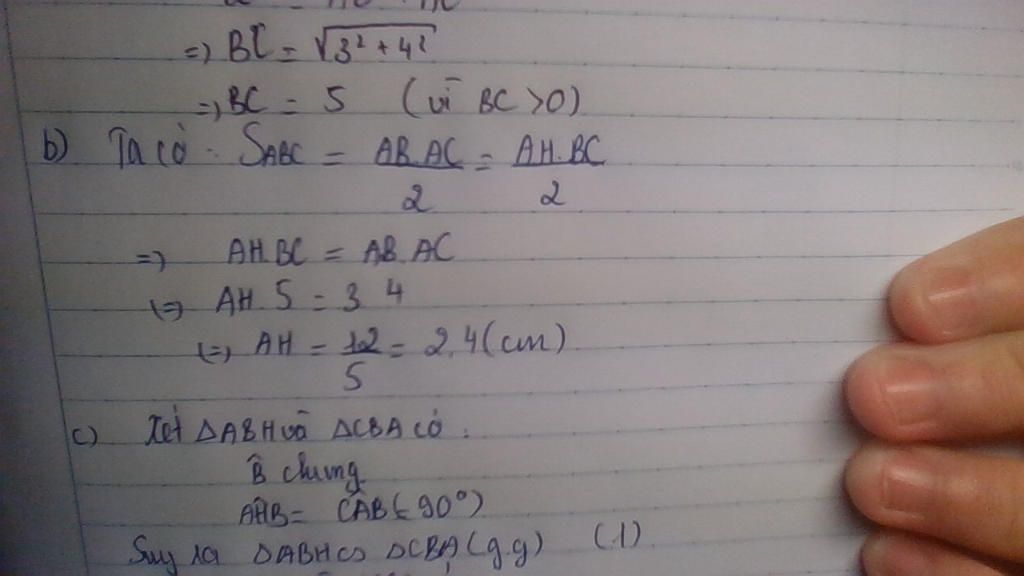 => BC = √3² + 4²
=> BC = 5 (vì BC > 0)
b) Ta có: SABC = AB.AC/2 = AH.BC/2
=> AH.BC = AB.AC
<=> AH.5 = 3.4
<=> AH = 12/5 = 2,4 (cm)
c) Xét ΔABH và ΔCBA có:
B̂ chung
AĤB = CÂB (= 90°)
Suy ra ΔABH ∽ ΔCBA (g.g) (1)